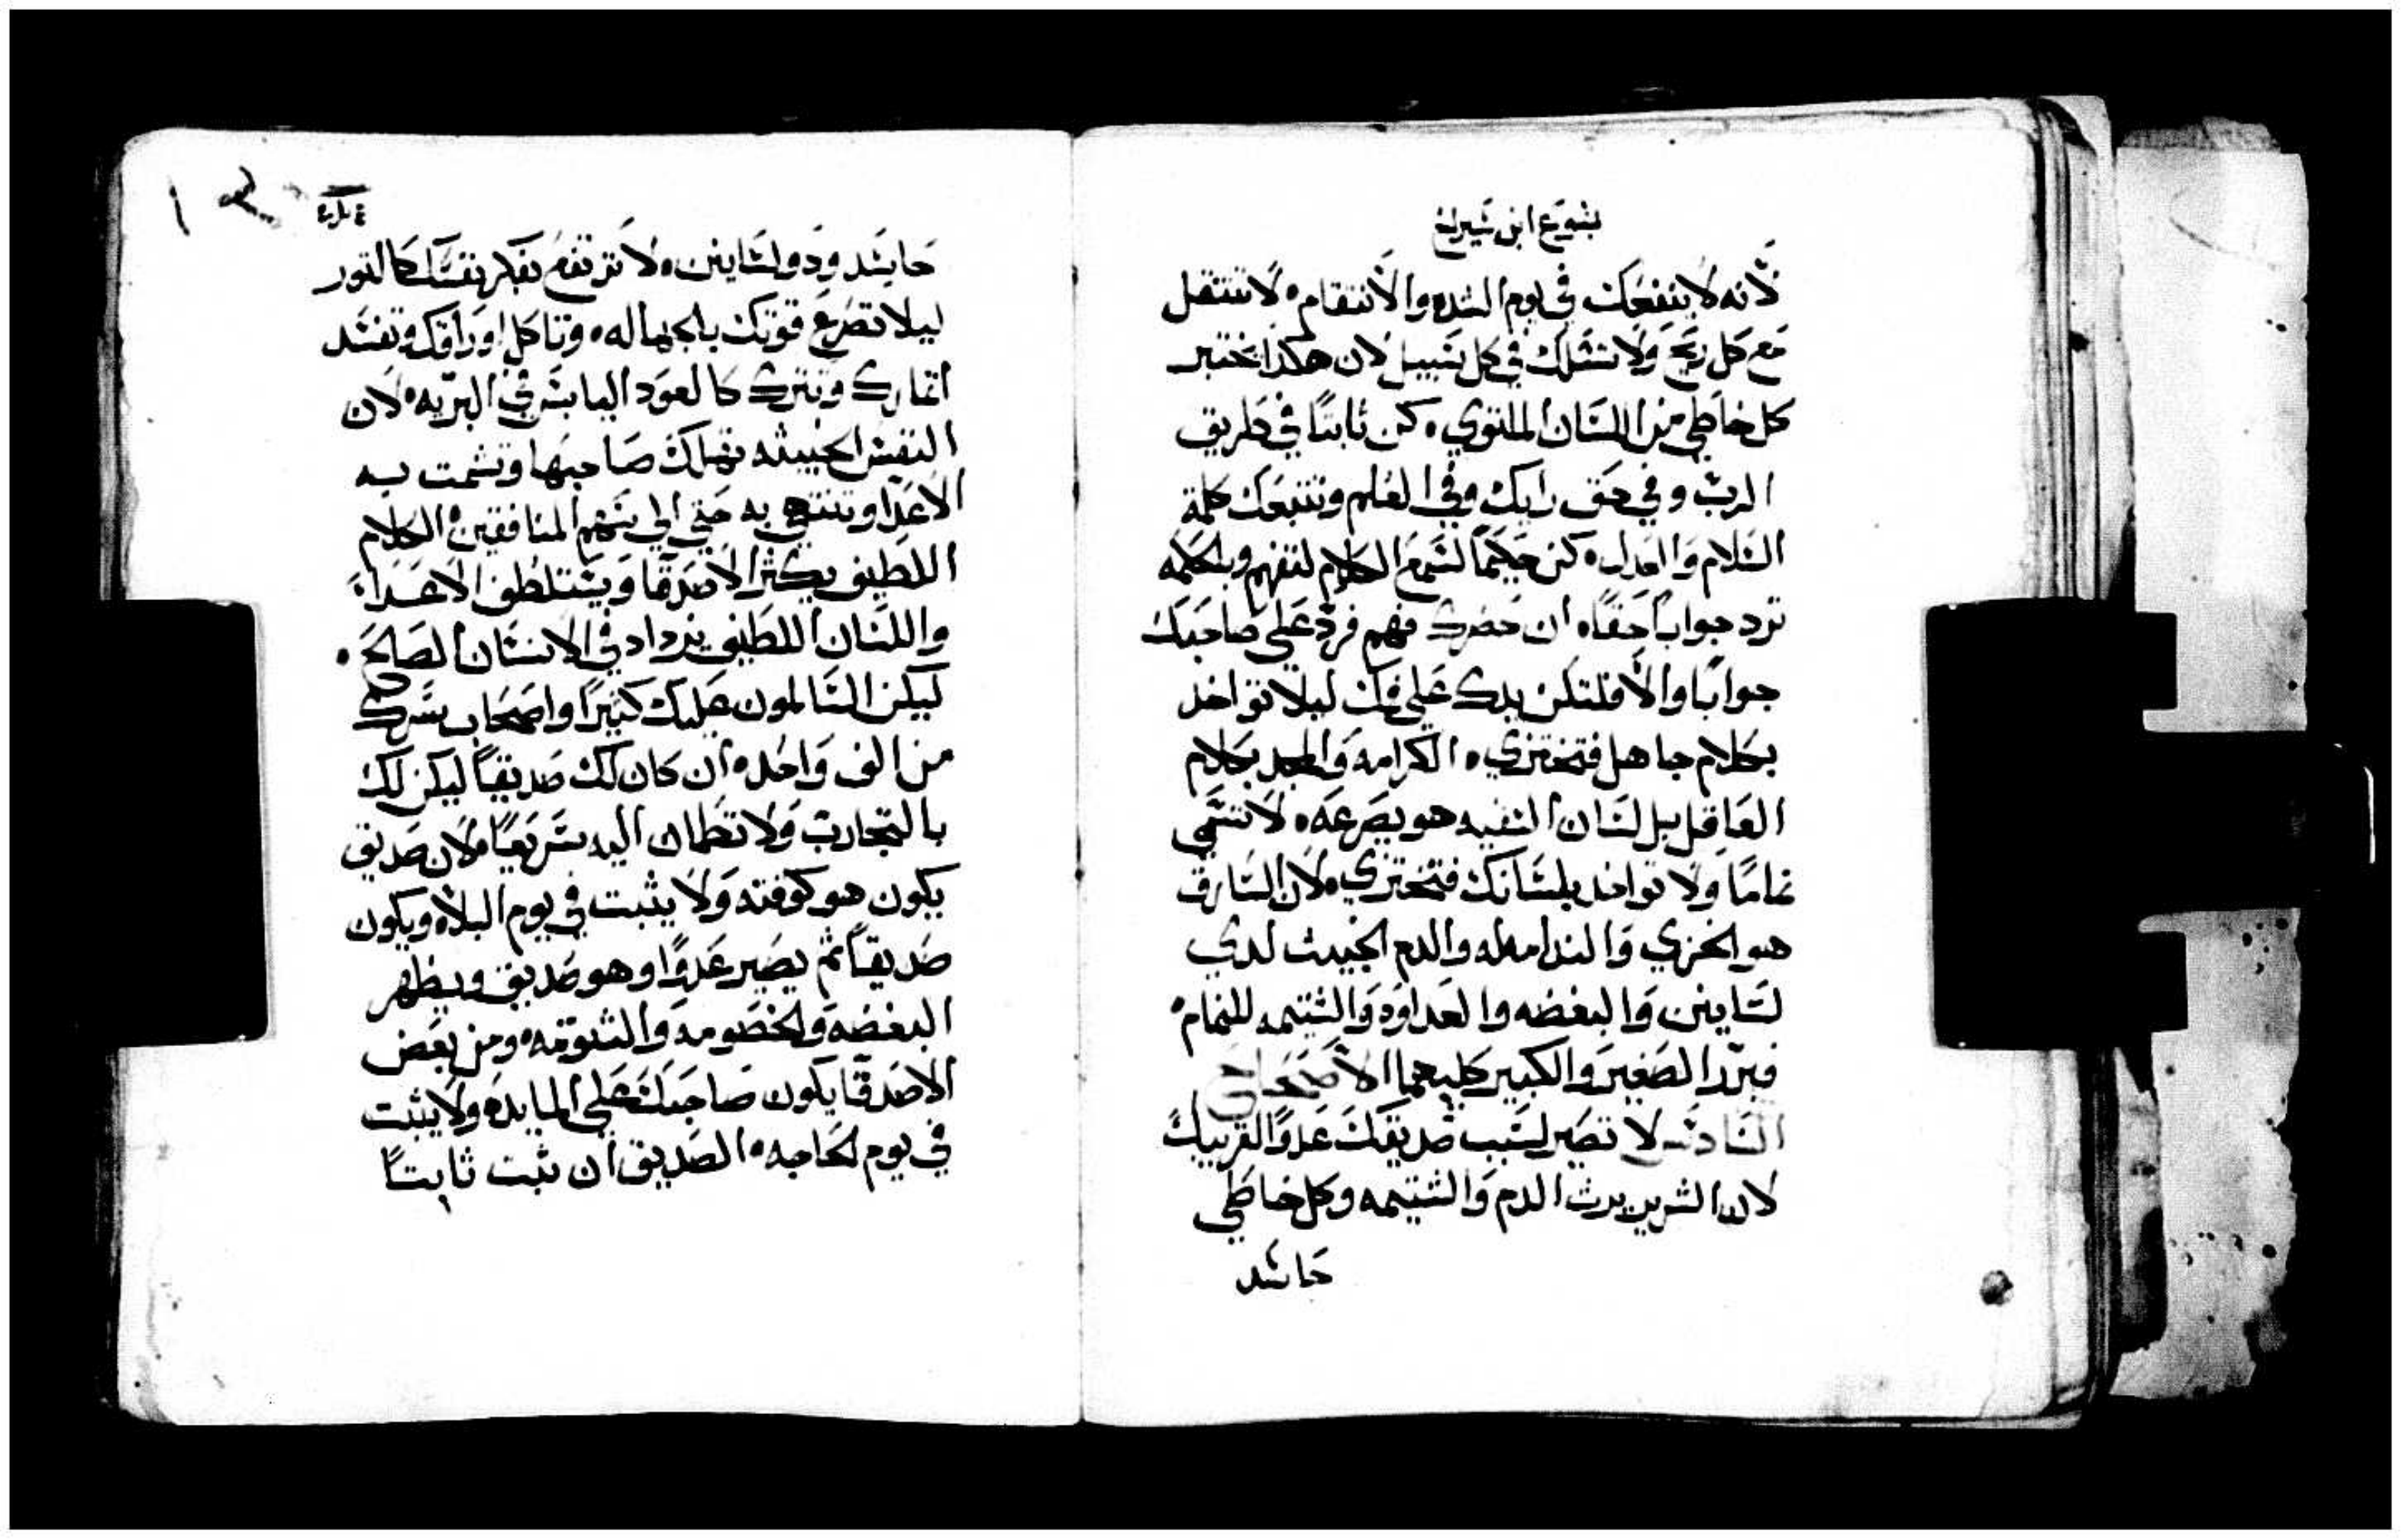 يشوع ابن شيراخ
لانه لا ينفعك في يوم الشده والانتقام ٥ لا تنتقل
مع كل ريح ولا تسلك في كل سبيل لان هكذا يختبر
كل خاطي من اللسان الملتوي ٥ كن ثابتًا في طريق
الرب وفي حق رايك وفي العلم وتتبعك كلمة
السلام والعدل ٥ كن حكيمًا لتسمع الكلام لتفهم وبالحكمه
ترد جوابًا حقًا ٥ ان حضرك فهم فرد على صاحبك
جوابًا والا فلتكن يدك على فمك ليلا تواخد
بكلام جاهل فتختزي ٥ الكرامه والمجد بكلام
العاقل بل لسان السفيه هو يصرعه ٥ لا تسمى
نمامًا ولا تواخد بلسانك فتختزي ٥ لان السارق
هو الخزي والندامه له والدم الخبيث لدي
لسانين والبغضه والعداوه والشتيمه للنمام ٥
فبرر الصغير والكبير كليهما الاصحاح
السادس لا تصير لسبب صديقك عدوًا لقريبك
لان الشرير يرث الدم والشتيمه وكل خاطي
حاسد
حاسد ودو لسانين ٥ لا ترتفع بفكر نفسك كالتور
ليلا تصرع قوتك بالجهاله ٥ وتاكل اوراقك وتفسد
اتمارك وتترك كالعود اليابس في البريه ٥ لان
النفس الخبيثه تهلك صاحبها وتشمت به
الاعدا وتنتهي به حتى الى سهم المنافقين ٥ الكلام
اللطيف يكثر الاصدقا ويستلطف الاعدا ٥
واللسان اللطيف يزداد في الانسان الصالح ٥
ليكن السالمون عليك كثيرًا واصحاب سرك
من الف واحد ٥ ان كان لك صديقًا ليكن لك
بالتجارب ولا تطمان اليه سريعًا ٥ لان صديق
يكون هو كوقته ولا يثبت في يوم البلا ٥ ويكون
صديقًا ثم يصير عدوًا وهو صديق ويظهر
البغضه والخصومه والشتومه ٥ ومن بعض
الاصدقا يكون صاحبك على المايده ولا يثبت
في يوم الحاجه ٥ الصديق ان ثبت ثابتًا